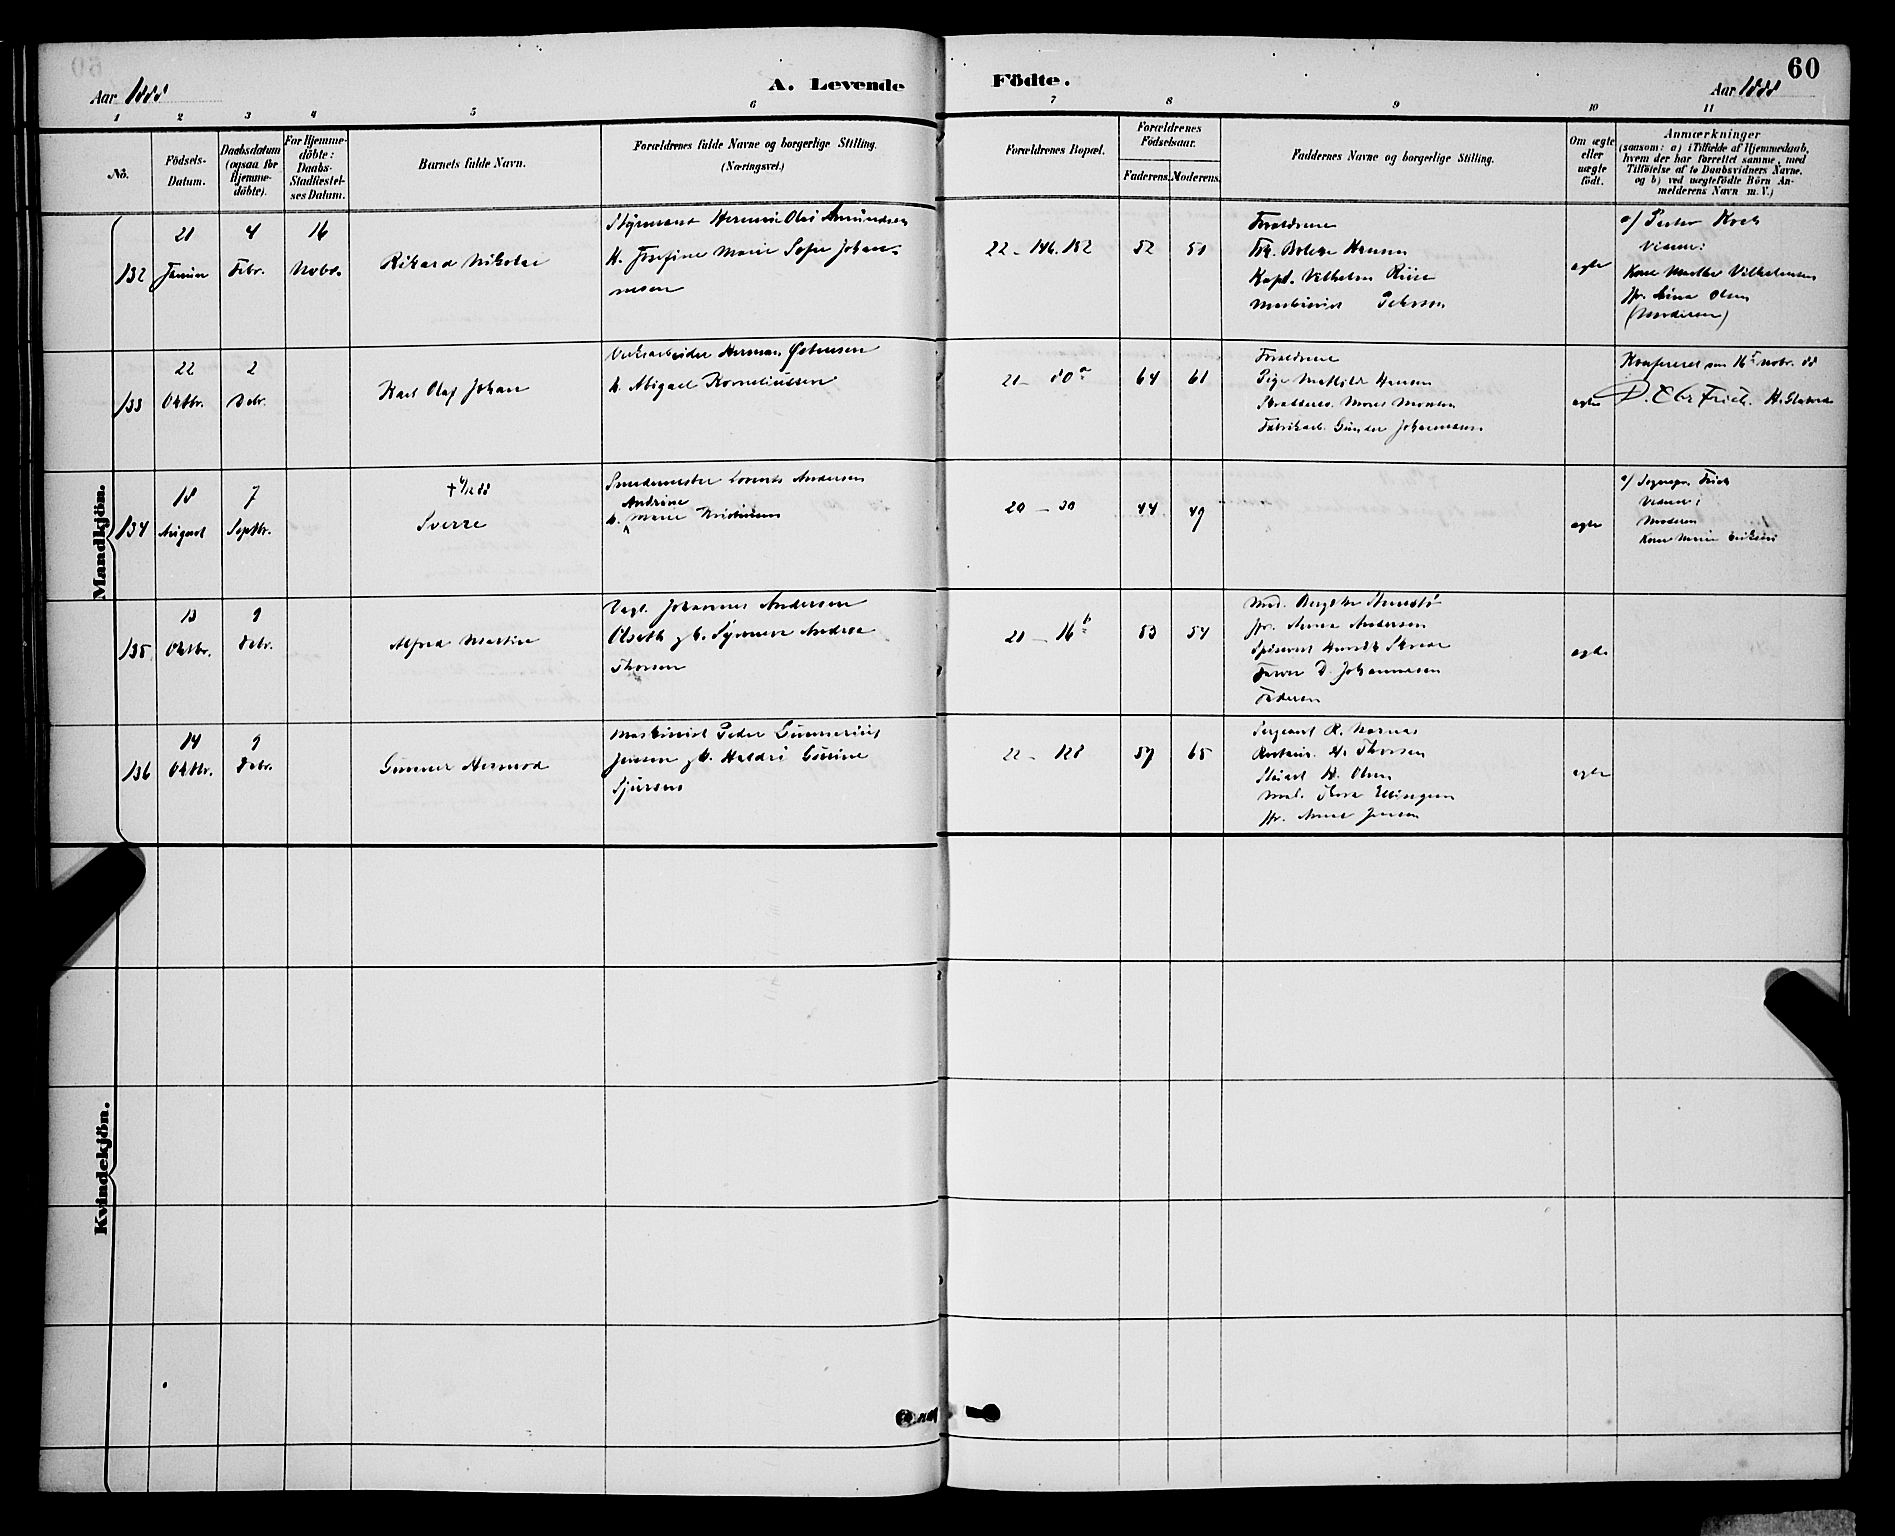 60
Aar 1888
A. Levende Födte.
Aar 1888
1 2 3 4 5 6 7 8 9 10 11
Nò.
Födsels-
Datum.
Daabsdatum
(ogsaa for
Hjemme-
döbte).
For Hjemme-
döbte:
Daabs-
Stadfæstel-
ses Datum.
Barnets fulde Navn.
Forældrenes fulde Navne og borgerlige Stilling.
(Næringsvei.)
Forældrenes Bopæl.
Forældrenes
Födselsaar.
Faderens. Moderens.
Faddernes Navne og borgerlige Stilling.
Om ægte
eller
uægte
födt.
Anmærkninger
(saasom: a) i Tilfælde af Hjemmedaab,
hvem der har forrettet samme, med
Tilföielse af to Daabsvidners Navne,
og b) ved uægtefödte Börn An-
melderens Navn m. V.)
Mandkjön.
132
21
Januar
4
Febr.
16
Novbr.
Rikard Nikolai
Styrmand Herman Olai Amundsen
H. Josefine Marie Sofie Johan-
nesen
22 - 146.152
52
51
Forældrene
Frk. Bolette Hansen
Kapt. Vilhelm Riise
Maskinist Petersen
ægte
a/ Pastor Koch
Vidner:
Kone Marthe Vilhelmsen
Fr. Anna Olsen
(Mordersen)
133
22
Oktbr.
2
Debr.
Karl Olaf Johan
Verksarbeider Herman Østensen
H. Abigael Korneliussen
21 - 80 a
64
61
Forældrene
Pige Mathilde Hansen
Skrædders. Mons Monsen
Fabrikarb. Gunder Johannesen
ægte
Konfereret den 16 novbr. 88
134
18
August
7
Septbr.
Sverre
Smedemester Lorents Andersen
Andrine
H. Marie Kristiansen
20 - 30
44
49
ægte
a/ Sognepr. Frich
Vidner:
Moderen
Kone Marie Eriksen
135
13
Oktbr.
9
Debr.
Alfred Martin
Johannes Andersen
Olseth H. Gyrene Andrea
Thorsen
21 - 16 b
53
54
Fr. Anna Andersen
D. Johannesen
Faderen
ægte
136
14
Oktbr.
9
Debr.
Gunnar Hermod
Maskinist Peder Gunnerius
Jensen H. Haldis Gurine
Sjursen
22 - 128
57
65
Sergeant R. Nornæs
H. Thorsen
Stuert H. Olsen
Mad. Thora Ellingsen
Fr. Anna Jensen
ægte
Kvindekjön.